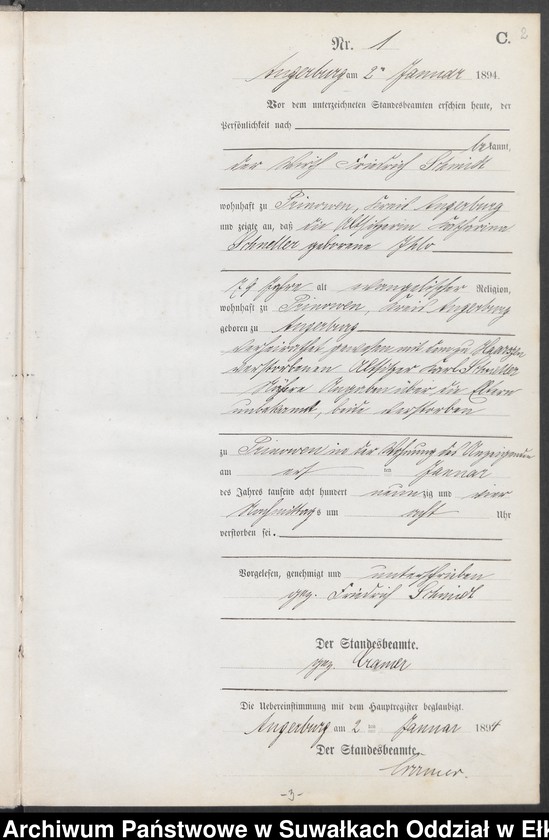 C. 2
Nr. 1
Angerburg am 2ten Januar 1894
Vor dem unterzeichneten Standesbeamten erschien heute, der
Persönlichkeit nach
bekannt,
der Wirth Friedrich Schmidt
wohnhaft zu Prinowen, Kreis Angerburg
und zeigte an, daß die Altsitzerin Catharina
Schneller geborene Ihlo
79 Jahre alt evangelischer Religion,
wohnhaft zu Prinowen, Kreis Angerburg
geboren zu Angerburg
verheirathet gewesen mit dem zu
verstorbenen Altsitzer Carl Schneller
Nähere Angaben über die Eltern
unbekannt, beide verstorben
zu Prinowen in der Wohnung des Anzeigenden
am ersten Januar
des Jahres tausend acht hundert neunzig und vier
Nachmittags um acht Uhr
verstorben sei.
Vorgelesen, genehmigt und unterschrieben
gez. Friedrich Schmidt
Der Standesbeamte.
gez. Cramer
Die Uebereinstimmung mit dem Hauptregister beglaubigt.
Angerburg am 2ten Januar 1894
Der Standesbeamte.
Cramer.
-3-
Archiwum Państwowe w Suwałkach Oddział w Ełk